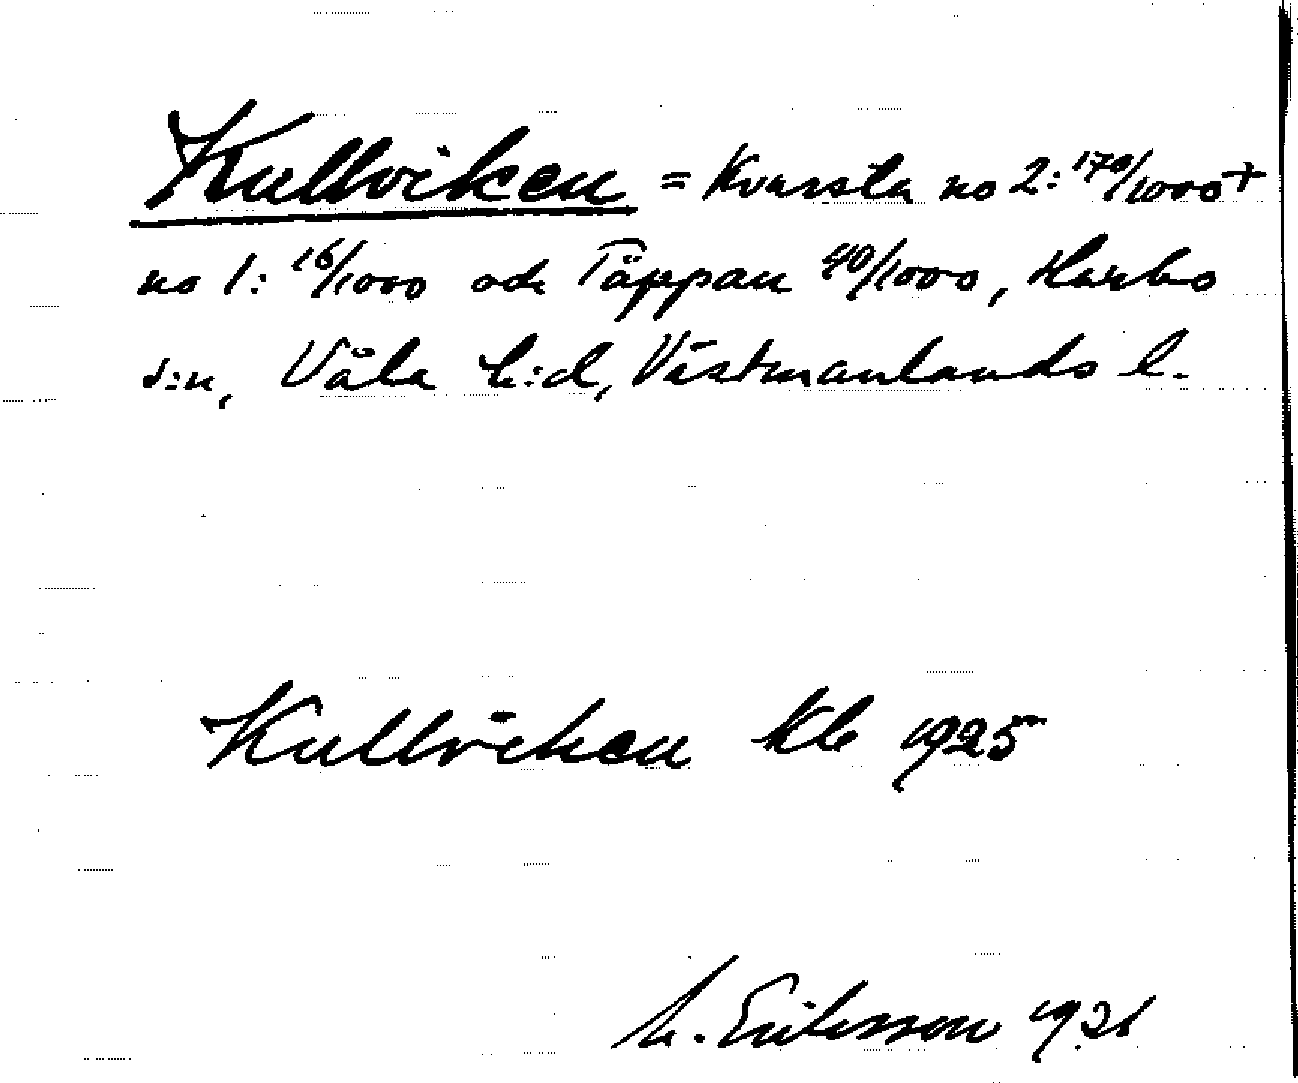 Kullviken = Kvarsta no 2:170/1000 +
no 1: 16/1000 och Täppan 40/1000, Harbo
s:n, Våla h:d, Västmanlands l.
Kullviken Kb 1925
M. Eriksson 1926